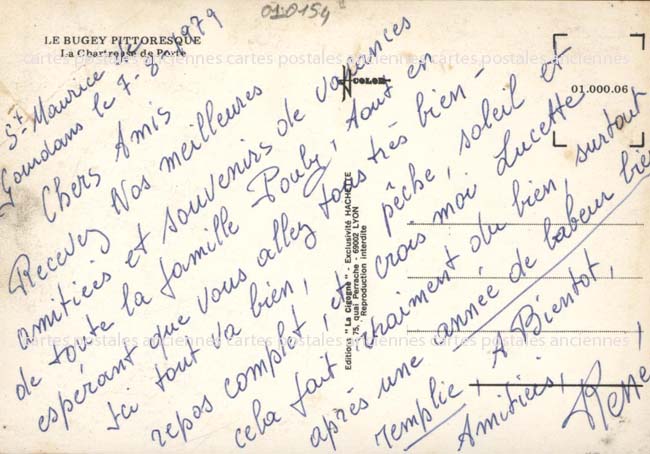 010154
LE BUGEY PITTORESQUE
La Chartreuse de Porte
COLOR
01.000.06
St Maurice de
Gourdans le 7-8-1979
Chers Amis
Recevez Nos meilleures
amitiées et souvenirs de vacances
de toute la famille Pouly, tout en
espérant que vous allez tous très bien-
Ici tout va bien, pêche, soleil et
repos complet, et crois moi Lucette
cela fait vraiment du bien surtout
après une année de labeur bien
remplie, A Bientot,
Amitiées,
Editions "La Cigogne" - Exclusivité HACHETTE
75, quai Perrache - 69002 LYON
Reproduction interdite
cartes postales anciennes cartes postales anciennes cartes postales anciennes
cartes postales anciennes cartes postales anciennes cartes postales anciennes